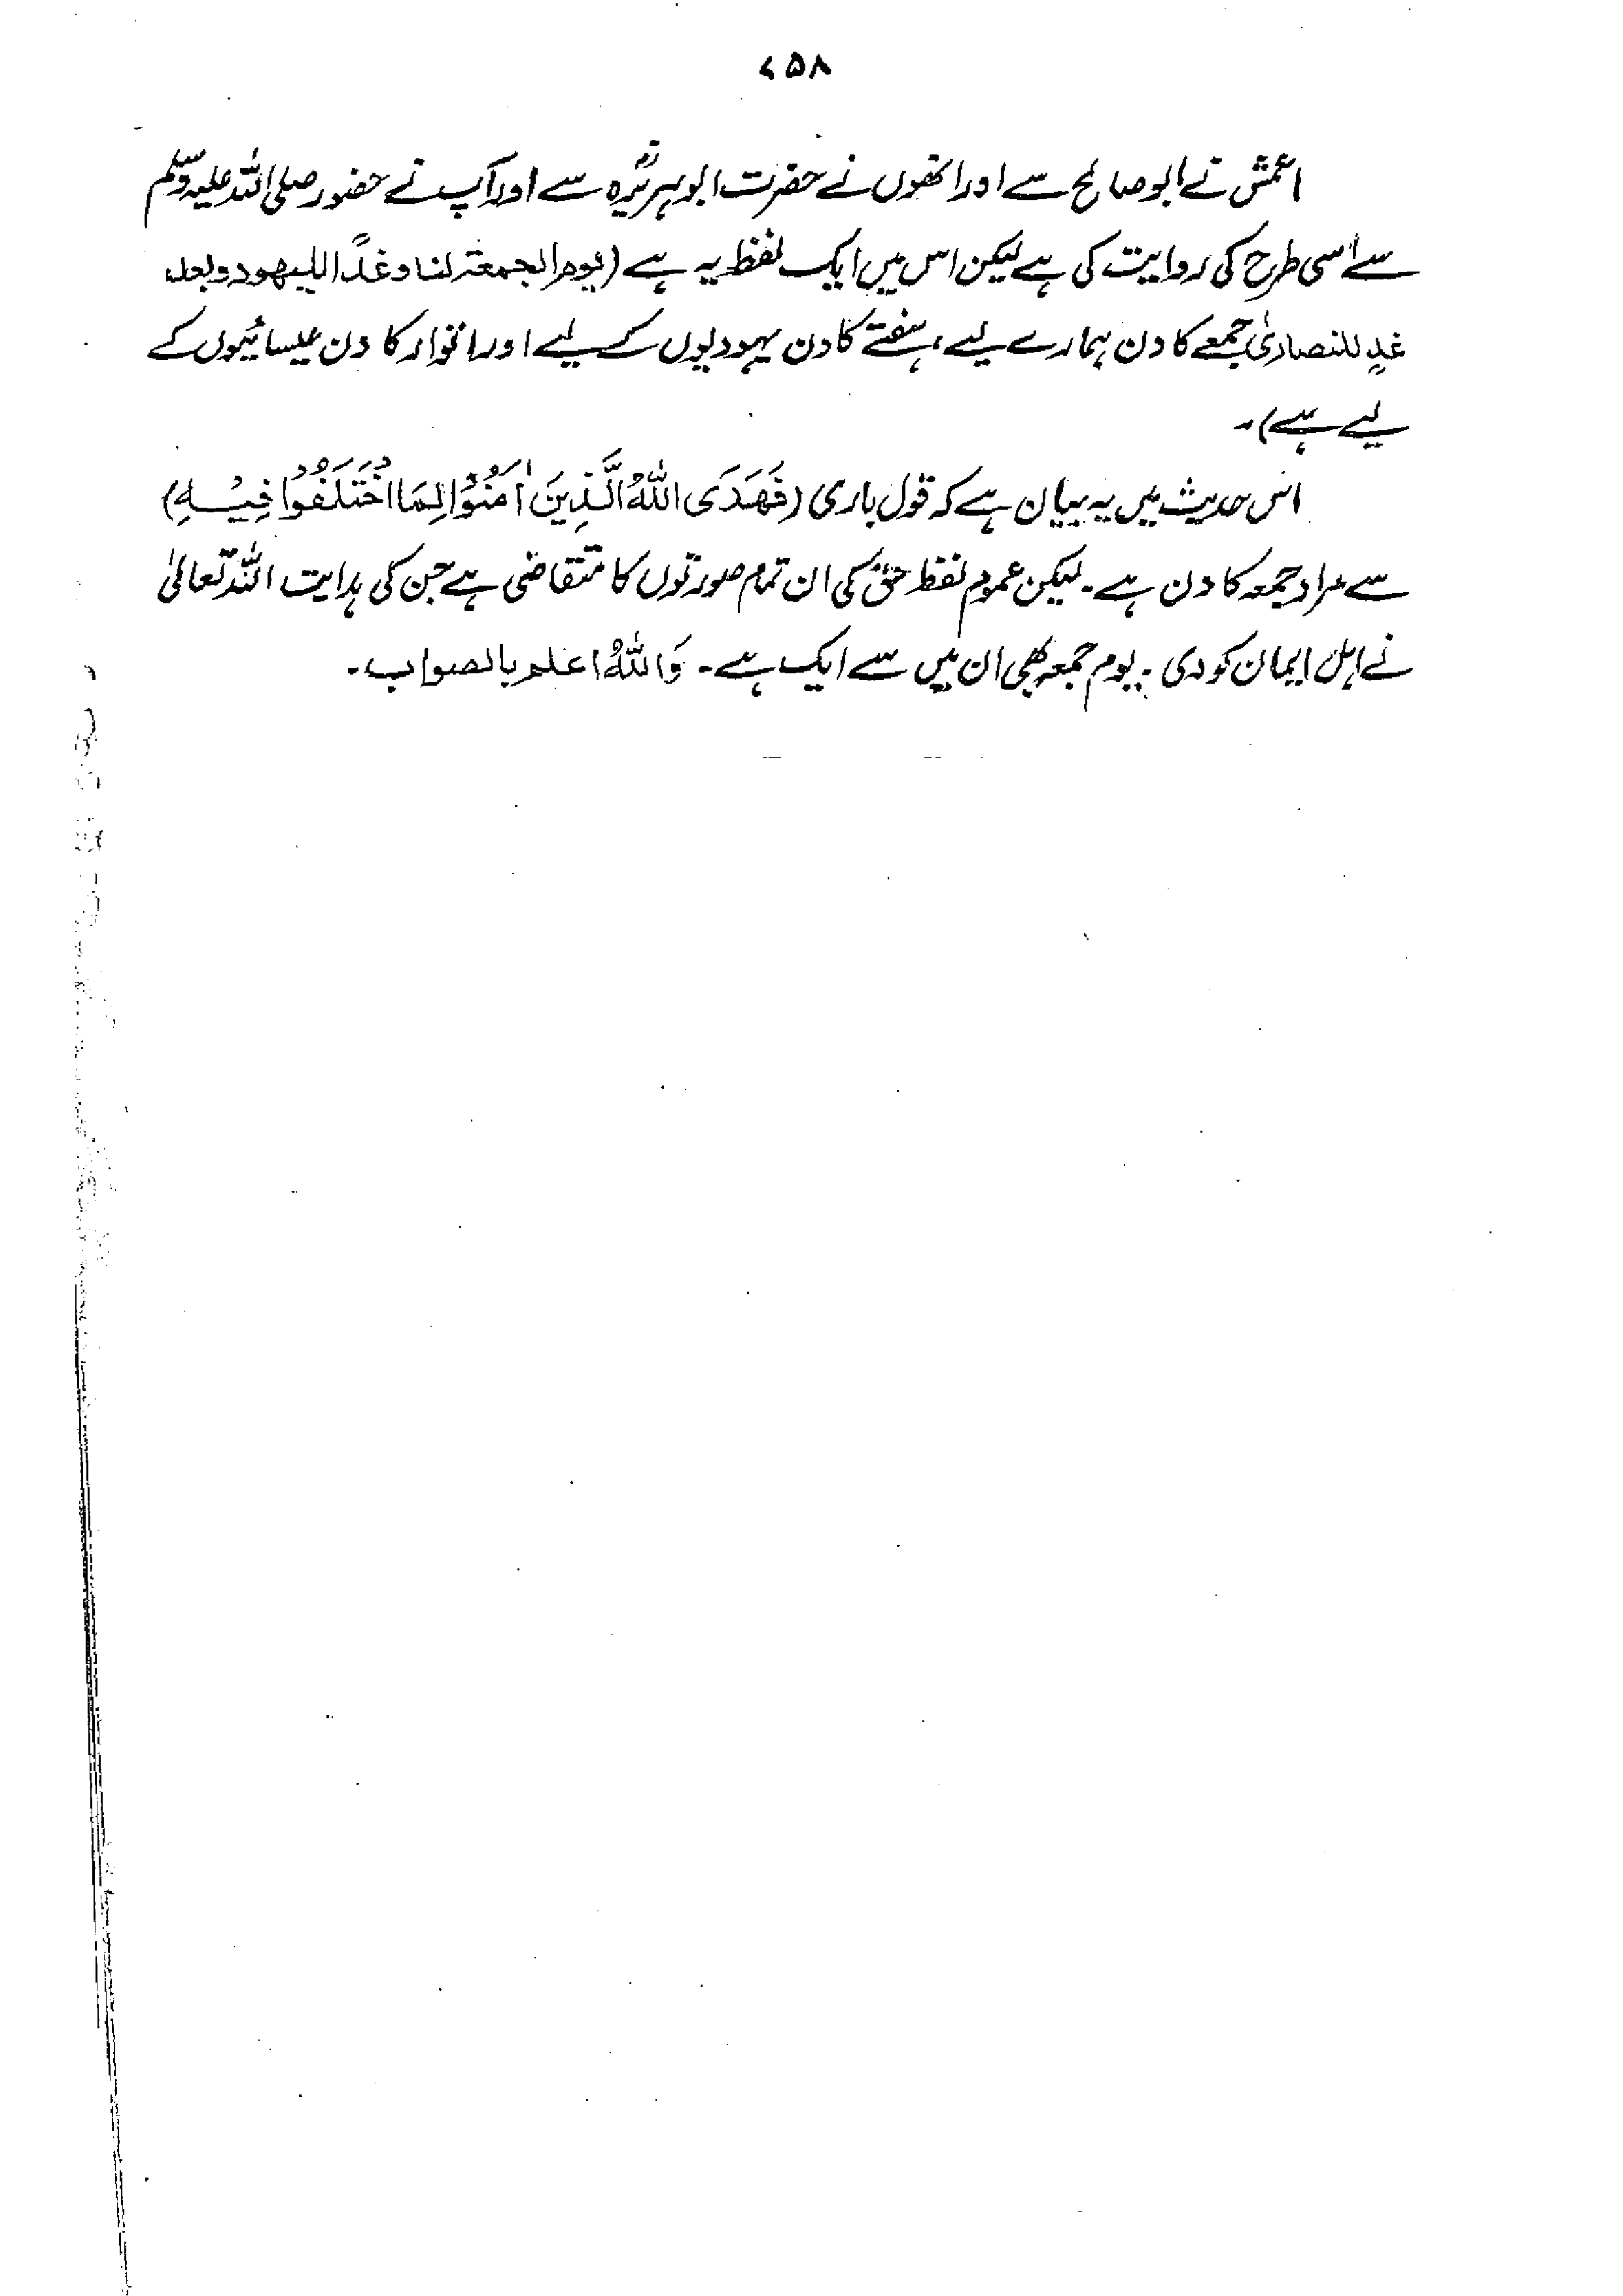 ۷۵۸
اعمش نے ابو صالح سے اور انھوں نے حضرت ابو ہریرہؓ سے اور آپ نے حضور صلی اللہ علیہ وسلم
سے اسی طرح کی روایت کی ہے لیکن اس میں ایک لفظ یہ ہے (یوم الجمعۃ لنا وغدًا للیھود وبعد
غدٍ للنصاریٰ جمعے کا دن ہمارے لیے، ہفتے کا دن یہودیوں کے لیے اور اتوار کا دن عیسائیوں کے
لیے ہے)۔
اس حدیث میں یہ بیان ہے کہ قول باری (فَهَدَى اللهُ الَّذِينَ اٰمَنُوْا لِمَا اخْتَلَفُوْا فِيْهِ)
سے مراد جمعہ کا دن ہے۔ لیکن عموم لفظ حق کی ان تمام صورتوں کا متقاضی ہے جن کی ہدایت اللہ تعالیٰ
نے اہل ایمان کو دی۔ یوم جمعہ بھی ان میں سے ایک ہے۔ وَاللهُ اعلم بالصواب۔